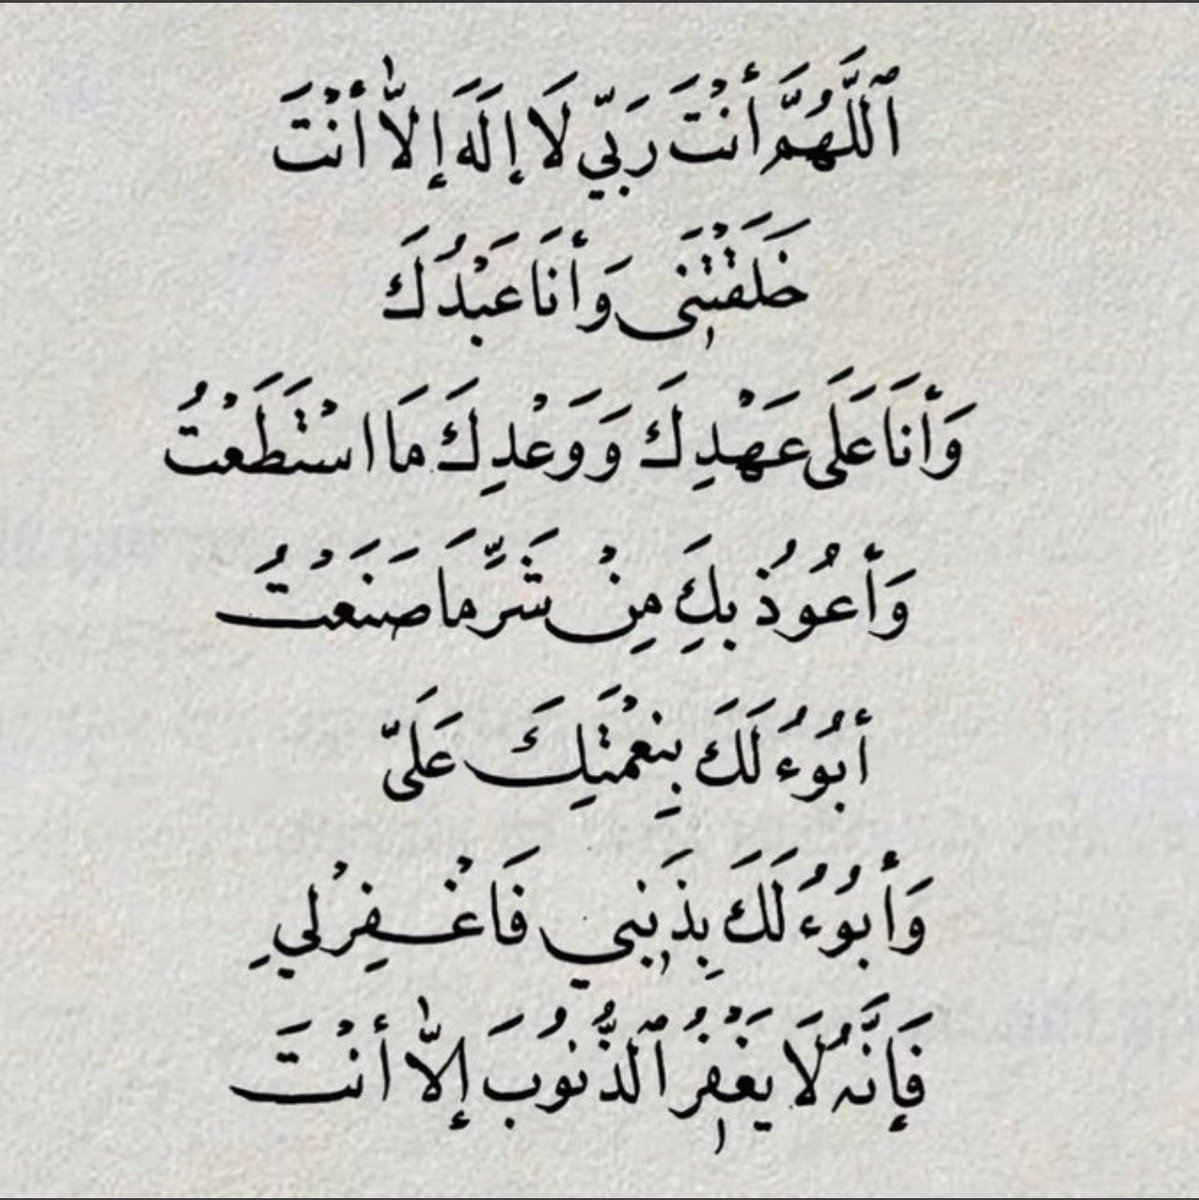 ٱللَّهُمَّ أَنْتَ رَبِّي لَا إِلَهَ إِلَّا أَنْتَ
خَلَقْتَنِى وَأَنَا عَبْدُكَ
وَأَنَا عَلَى عَهْدِكَ وَوَعْدِكَ مَا اسْتَطَعْتُ
وَأَعُوذُ بِكَ مِنْ شَرِّ مَا صَنَعْتُ
أَبُوءُ لَكَ بِنِعْمَتِكَ عَلَىَّ
وَأَبُوءُ لَكَ بِذَنْبِي فَاغْفِرْ لِي
فَإِنَّهُ لَا يَغْفِرُ ٱلذُّنُوبَ إِلَّا أَنْتَ